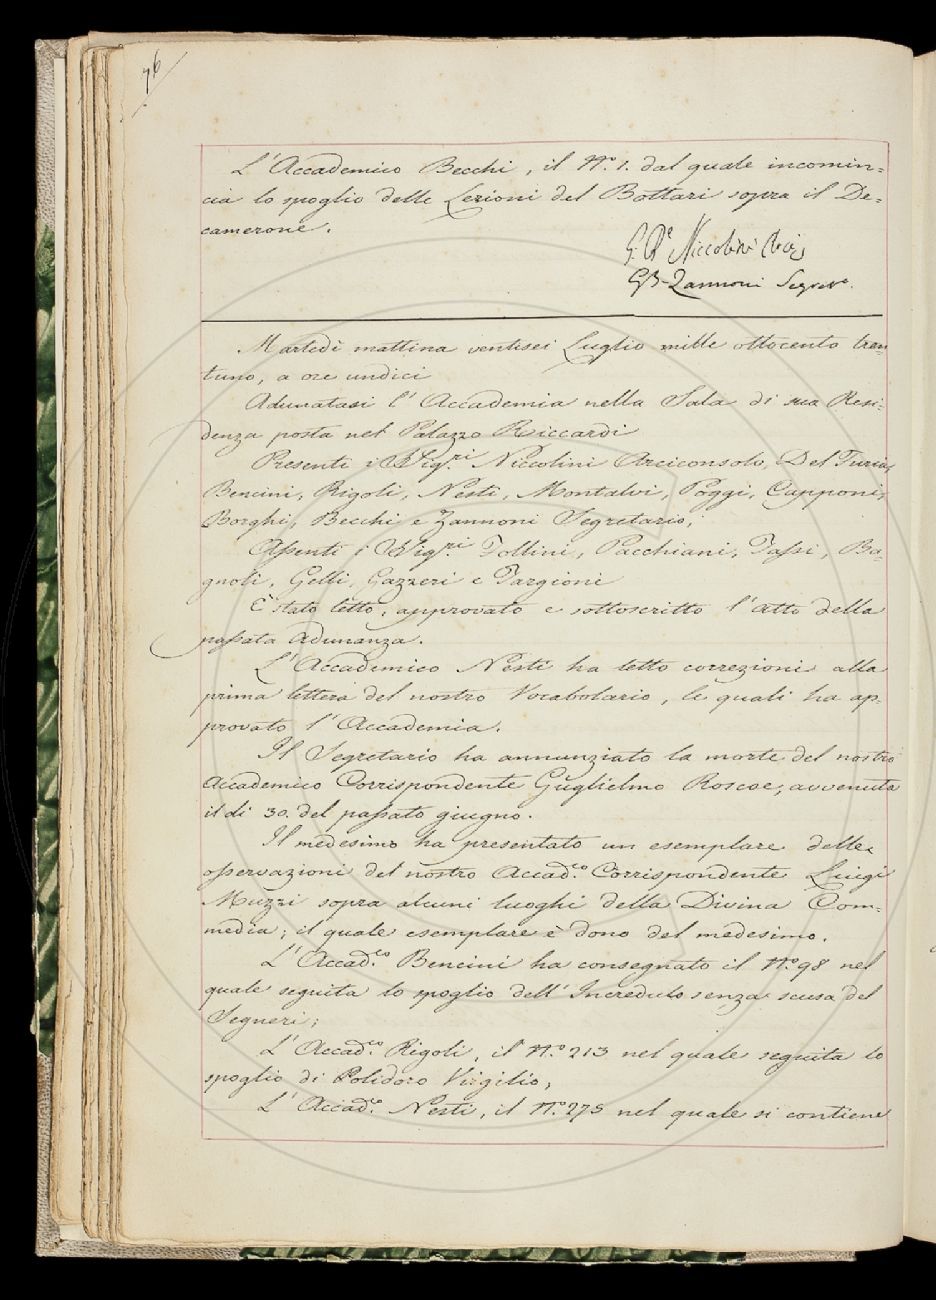 76
L'Accademico Becchi, il N.º 1. dal quale incomin=
cia lo spoglio delle Lezioni del Bottari sopra il De=
camerone.
G. Bª Niccolini
GB Zannoni Segret.º
Martedì mattina ventisei Luglio mille ottocento tren=
tuno, a ore undici
Adunatasi l'Accademia nella Sala di sua Resi=
denza posta nel Palazzo Riccardi
Presenti i SSig.ri Niccolini Arciconsolo, Del Furia,
Bencini, Rigoli, Nesti, Montalvi, Poggi, Capponi,
Borghi, Becchi e Zannoni Segretario;
Assenti i SSig.ri Follini, Pacchiani, Tassi, Ba=
gnoli, Gelli, Gazzeri e Targioni
È stato letto, approvato e sottoscritto l'atto della
passata adunanza.
L'Accademico Nesti ha letto correzioni alla
prima lettera del nostro Vocabolario, le quali ha ap=
provato l'Accademia.
Il Segretario ha annunziato la morte del nostro
Accademico Corrispondente Guglielmo Roscoe, avvenuta
il dì 30. del passato giugno.
Il medesimo ha presentato un esemplare delle
osservazioni del nostro Accad.co Corrispondente Luigi
Muzzi sopra alcuni luoghi della Divina Com=
media; il quale esemplare è dono del medesimo.
L'Accad.co Bencini ha consegnato il N.º 98 nel
quale seguita lo spoglio dell'Incredulo senza scusa del
Segneri;
L'Accad.co Rigoli, il N.º 213 nel quale seguita lo
spoglio di Polidoro Virgilio,
L'Accad.co Nesti, il N.º 275 nel quale si contiene